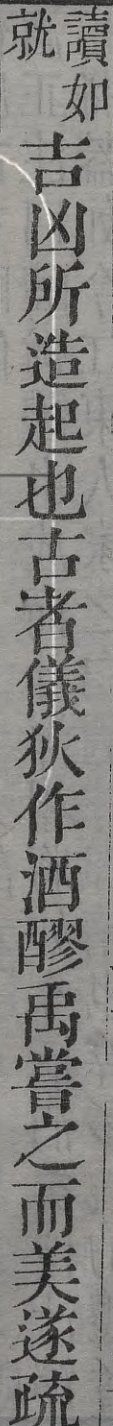 讀如
就
吉凶所造起也古者儀狄作酒醪禹嘗之而美遂疏